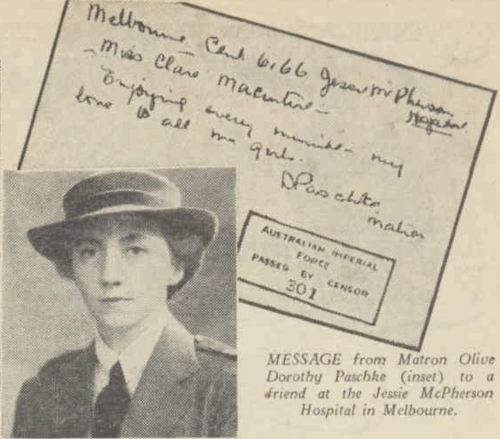 Melbourne. Cent. 6166 Jessie McPherson
Hospital.
- Miss Clare Macintire -
Enjoying every minute - my
love to all me girls.
D Paschke
matron
AUSTRALIAN IMPERIAL
FORCE
PASSED BY CENSOR
301
MESSAGE from Matron Olive
Dorothy Paschke (inset) to a
friend at the Jessie McPherson
Hospital in Melbourne.